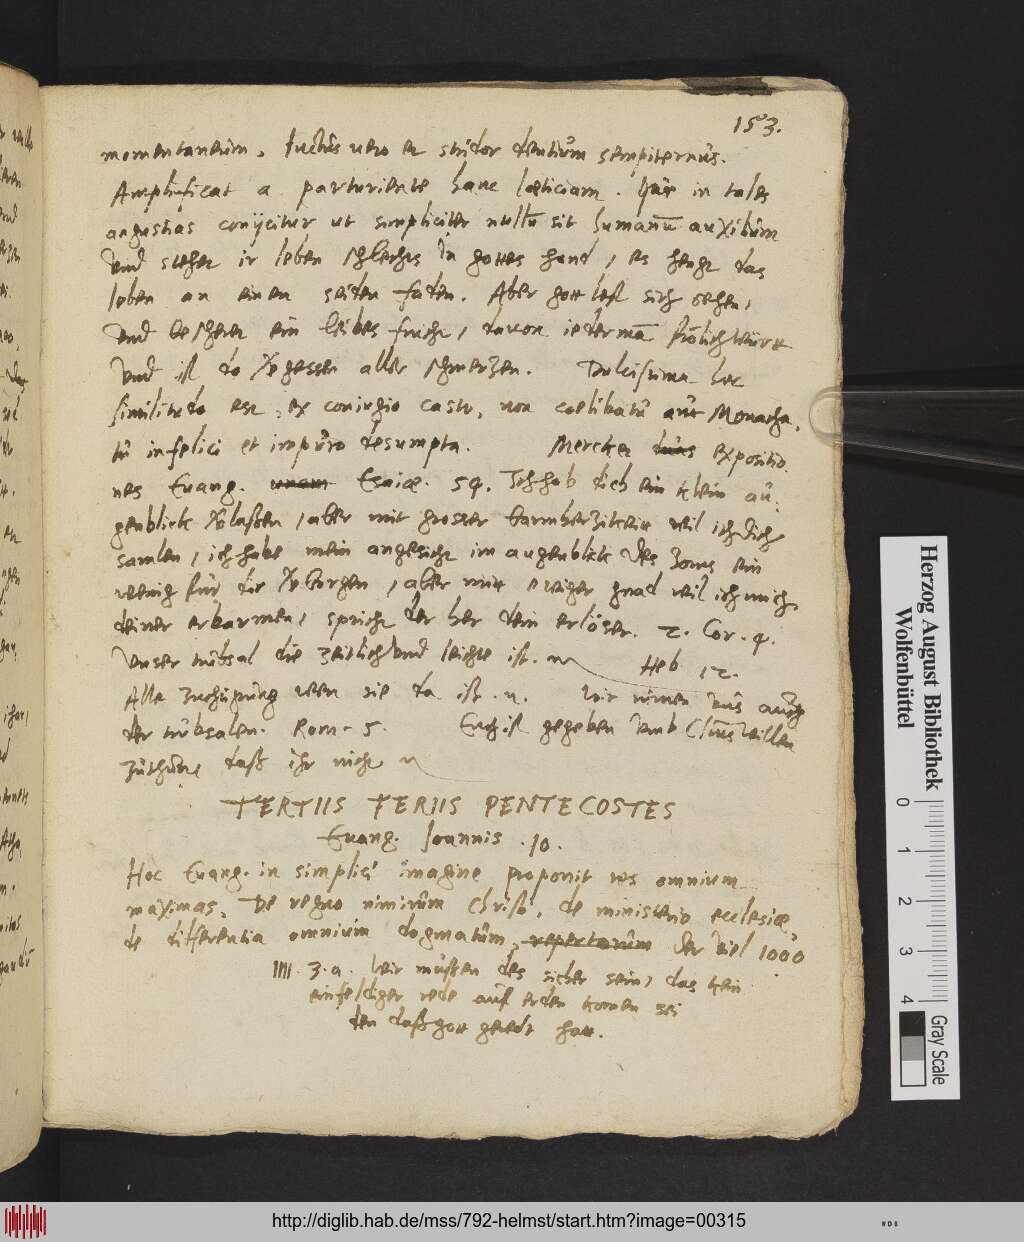 153.
momentaneum, luctus vero et stridor dentium sempiternus.
Amplificat a parturiente hanc laeticiam. in tales
angustias conijcitur ut simpliciter nullu sit humanu auxilium
vnd stehet ir leben schlechts in gottes hand, es hengt das
leben an einen seiden faden. Aber gott lest sich sehen,
vnd bescheret ein leibes frucht, davon iederma frölich
vnd ist do vergessen aller schmerzen. Dulcissima hec
similitudo est, ex coniugio casto, non coelibatu aut Monacha,
tu infelici et impuro desumpta. Mercket expositio
nes Euang. Esaiae. 54. Ich hab dich ein klein au:
genblick verlaßen, aber mit grosser barmherzikeit wil ich dich
samlen, ich habe mein angesicht im augenblick des Zorns ein
wenig fur dir verborgen, aber mitt ewiger gnad wil ich mich
deiner erbarmen, spricht der her dein erlöser. 2. Cor. 4.
Unser trübsal die zeitlich vnd leichte ist. Heb. 12.
Alle Zuchtigung wen sie da ist. Wir rümen vns auch
der trübsalen. Rom. 5. Euch ist gegeben vmb willen
Zuthun daß ihr nicht
TERTIIS FERIIS PENTECOSTES
Euang. Joannis. 10.
Hoc Euang. in simplici imagine proponit res omnium
maximas, De regno nimirum Christi, de ministerio ecclesiae
de differentia omnium dogmatum, der viel 1000
IIII. 3. a. Wir müßen des sicher sein, das kein
einfeldiger rede auf erden komen sei
den daß gott geredt hatt.
Herzog August Bibliothek
Wolfenbüttel
0 1 2 3 4
Gray Scale
http://diglib.hab.de/mss/792-helmst/start.htm?image=00315